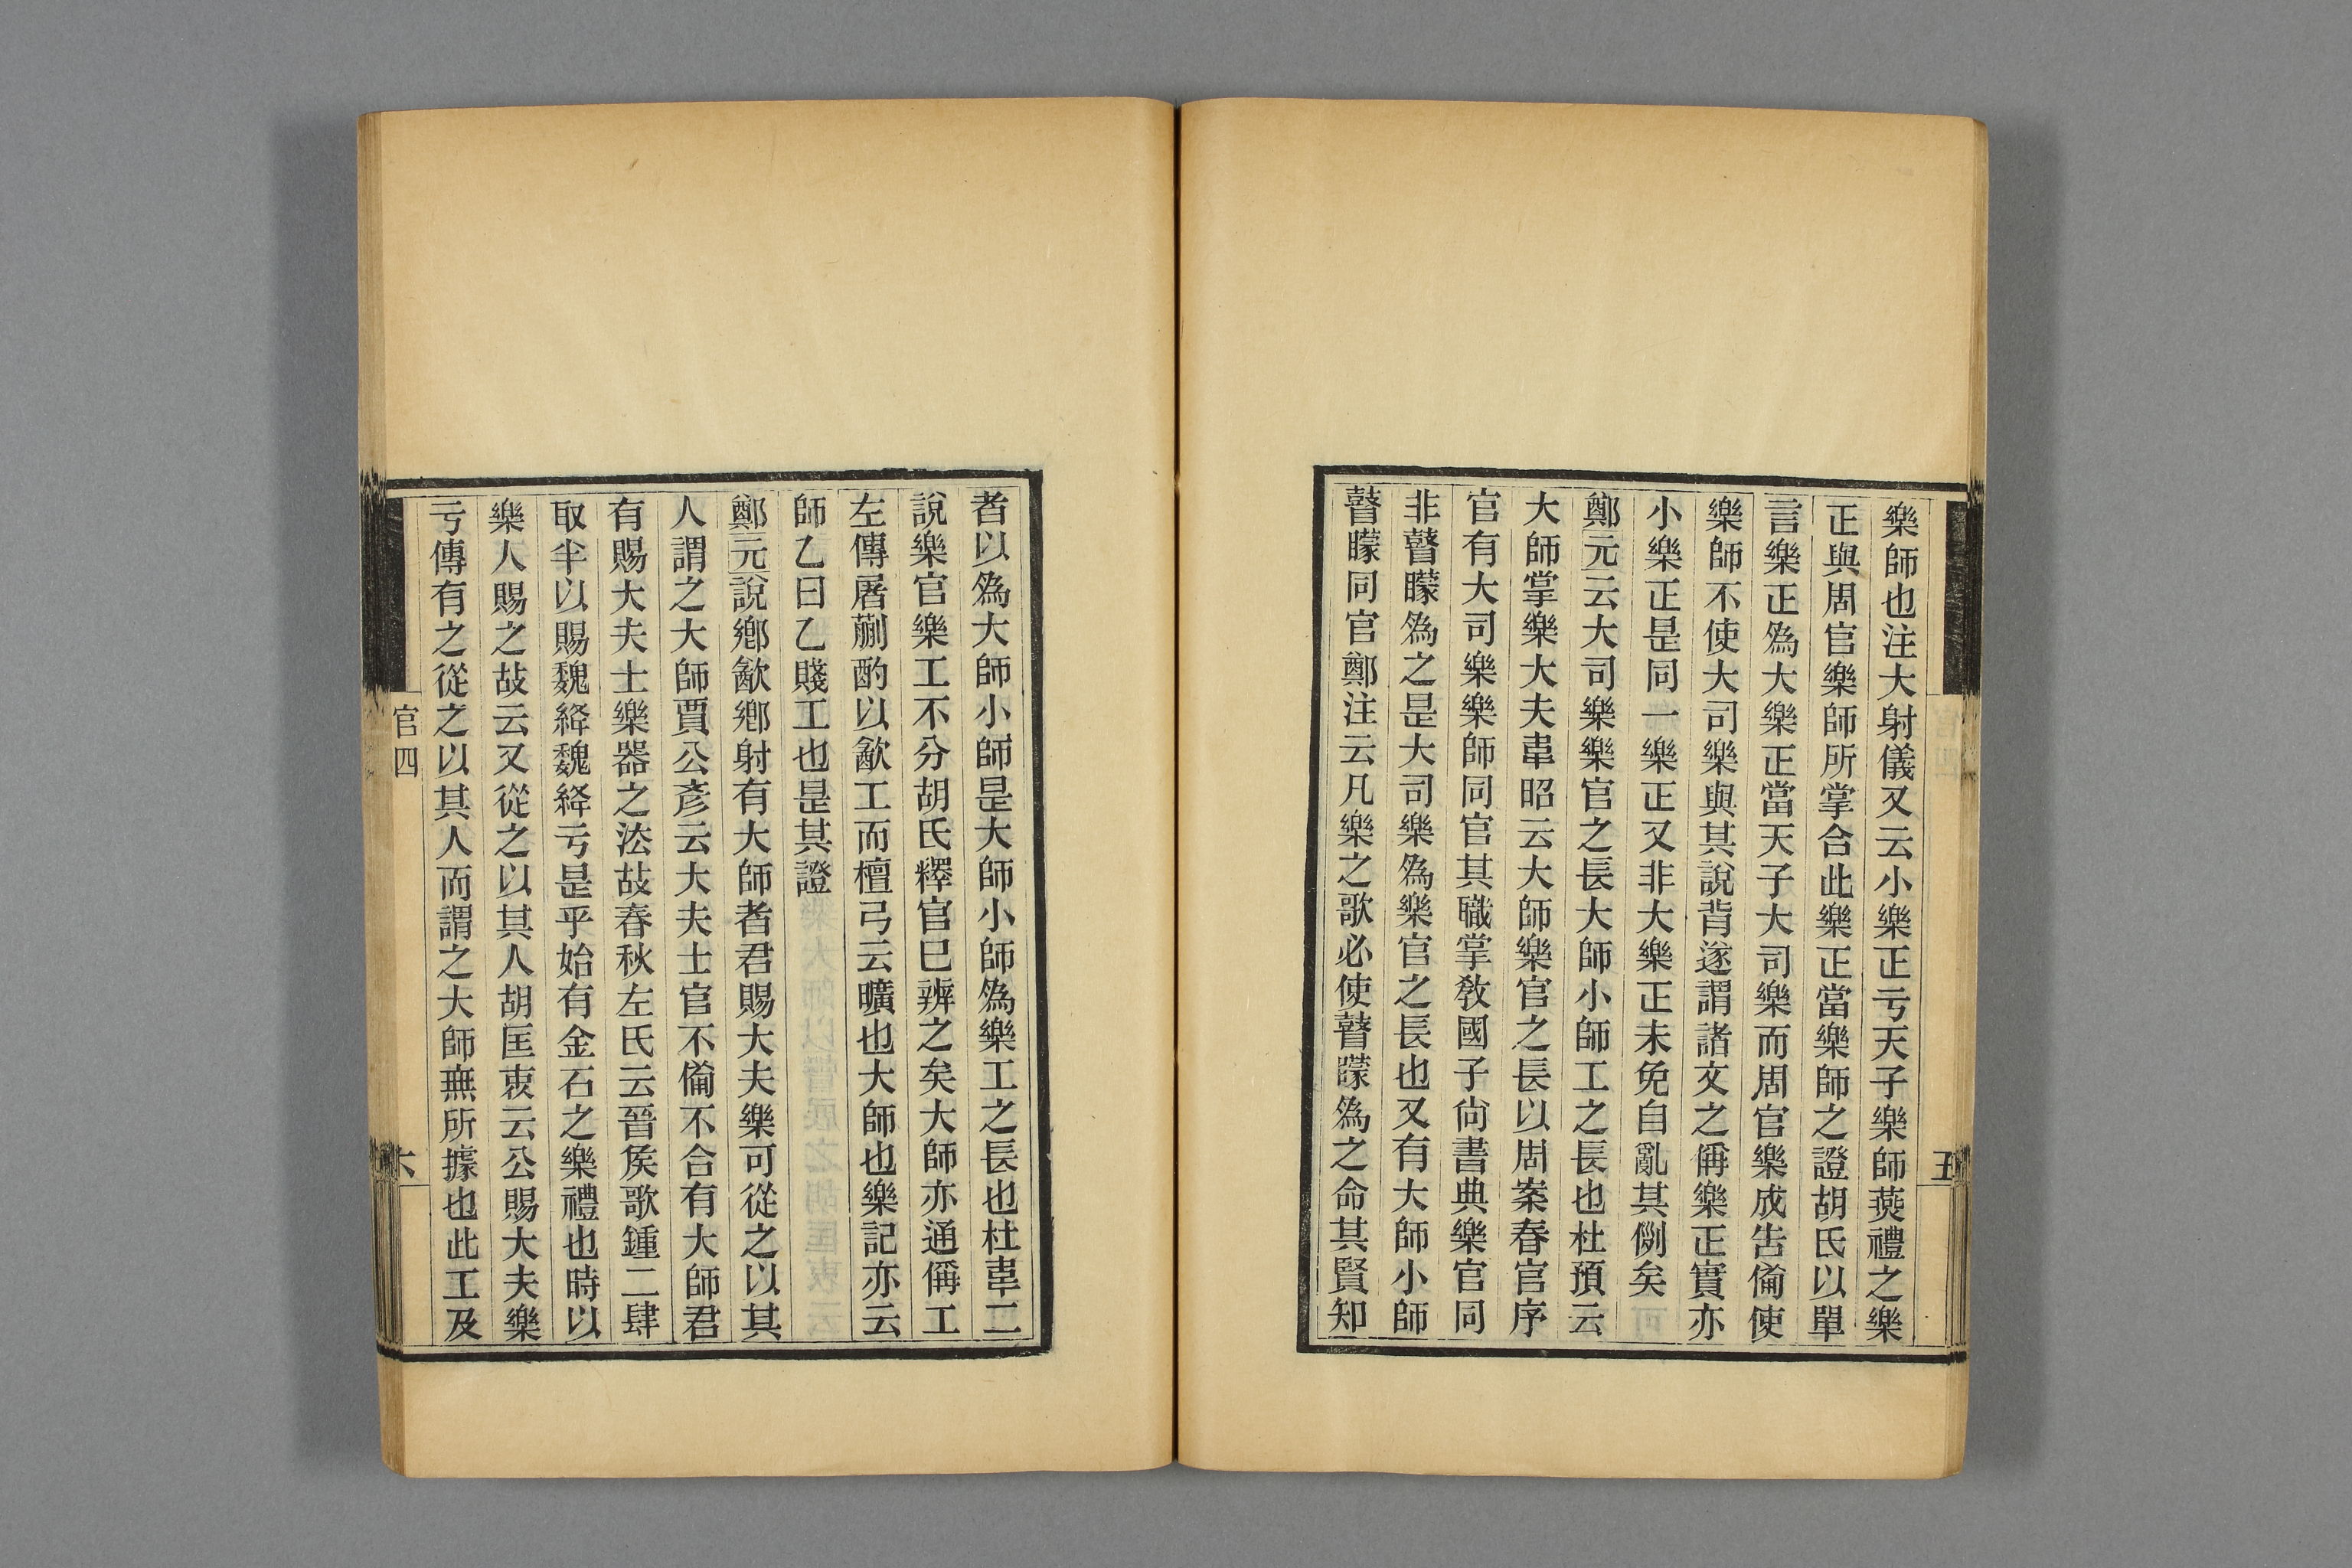 樂師也注大射儀又云小樂正亏天子樂師燕禮之樂
正與周官樂師所掌合此樂正當樂師之證胡氏以單
言樂正爲大樂正當天子大司樂而周官樂成告僃使
樂師不使大司樂與其說背遂謂諸文之偁樂正實亦
小樂正是同一樂正又非大樂正未免自亂其例矣
鄭元云大司樂樂官之長大師小師工之長也杜預云
大師掌樂大夫韋昭云大師樂官之長以周案春官序
官有大司樂樂師同官其職掌敎國子尙書典樂官同
非瞽矇爲之是大司樂爲樂官之長也又有大師小師
瞽矇同官鄭注云凡樂之歌必使瞽矇爲之命其賢知
五
者以爲大師小師是大師小師爲樂工之長也杜韋二
說樂官樂工不分胡氏釋官巳辨之矣大師亦通偁工
左傳屠蒯酌以歙工而檀弓云曠也大師也樂記亦云
師乙曰乙賤工也是其證
鄭元說鄉歙鄉射有大師者君賜大夫樂可從之以其
人謂之大師賈公彥云大夫士官不僃不合有大師君
有賜大夫士樂器之法故春秋左氏云晉矦歌鍾二肆
取半以賜魏絳魏絳亏是乎始有金石之樂禮也時以
樂人賜之故云又從之以其人胡匡衷云公賜大夫樂
亏傳有之從之以其人而謂之大師無所據也此工及
官四
六